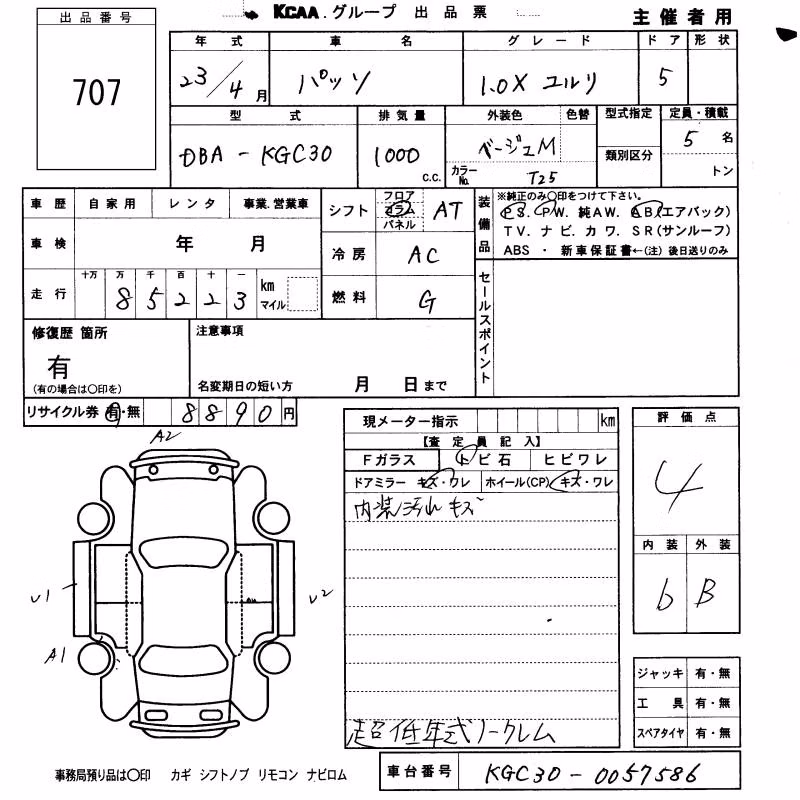 KCAA.グループ 出品票
主催者用
出品番号
707
年式 車名 グレード ドア 形状
23/4月 パッソ 1.0X ユルリ 5
型式 排気量 外装色 色替 型式指定 定員・積載
DBA-KGC30 1000 c.c. ベージュM 類別区分 5名
カラーNo. T25 トン
車歴 自家用 レンタ 事業.営業車
車検 年 月
走行 十万 万 千 百 十 一
85223 km マイル
シフト フロア コラム パネル AT
冷房 AC
燃料 G
装備品
※純正のみ○印をつけて下さい。
PS. PW. 純AW. AB(エアバック)
TV. ナビ. カワ. SR(サンルーフ)
ABS ・ 新車保証書←(注) 後日送りのみ
セールスポイント
修復歴 箇所
有
(有の場合は○印を)
注意事項
名変期日の短い方 月 日まで
リサイクル券 有・無 8890円
現メーター指示 km
【査定員記入】
Fガラス トビ石 ヒビワレ
ドアミラー キズ・ワレ ホイール(CP) キズ・ワレ
内装汚れ キズ
超低年式ノークレム
評価点
4
内装 外装
b B
A2
U1
U2
A1
ジャッキ 有・無
工具 有・無
スペアタイヤ 有・無
事務局預り品は○印 カギ シフトノブ リモコン ナビロム
車台番号 KGC30-0057586